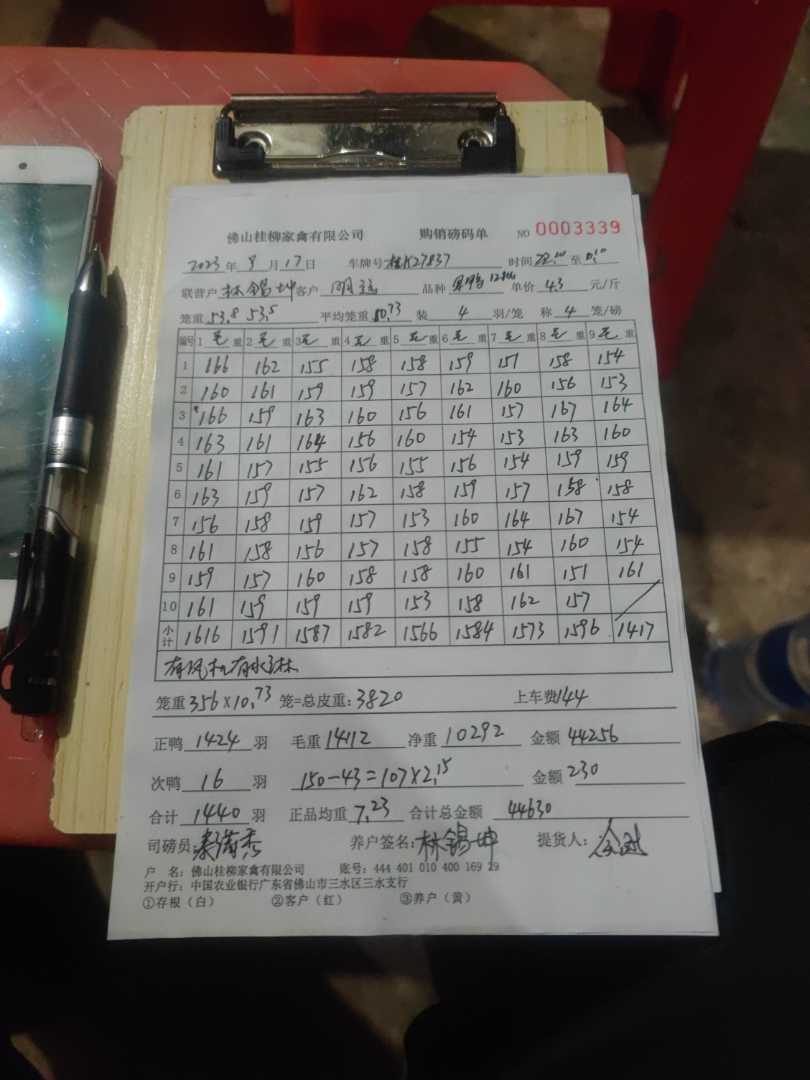 佛山桂柳家禽有限公司 购销磅码单 NO 0003339
2023年9月17日 车牌号桂K27837 时间 至
联营户 林锡坤 客户 明远 品种 单价 4.3 元/斤
笼重 53.8 53.5 平均笼重 10.73 装 4 羽/笼 称 4 笼/磅
编号 1毛重 2毛重 3毛重 4毛重 5毛重 6毛重 7毛重 8毛重 9毛重
1 166 162 155 158 158 159 151 158 154
2 160 161 159 159 157 162 160 156 153
3 166 159 163 160 156 161 157 167 164
4 163 161 164 156 160 154 153 163 160
5 161 157 155 156 155 156 154 159 159
6 163 159 157 162 158 159 157 158 158
7 156 158 159 157 153 160 164 167 154
8 161 158 156 157 158 155 154 160 154
9 159 157 160 158 158 160 161 151 161
10 161 159 159 159 153 158 162 157
小计 1616 1591 1587 1582 1566 1584 1573 1596 1417
有风机有水淋
笼重 356×10.73 笼=总皮重:3820 上车费144
正鸭 1424 羽 毛重 14112 净重 10292 金额 44256
次鸭 16 羽 150-43=107×2.15 金额 230
合计 1440 羽 正品均重 7.23 合计总金额 44630
司磅员: 养户签名:林锡坤 提货人:
户 名:佛山桂柳家禽有限公司 账号:444 401 010 400 169 29
开户行:中国农业银行广东省佛山市三水区三水支行
①存根(白) ②客户(红) ③养户(黄)